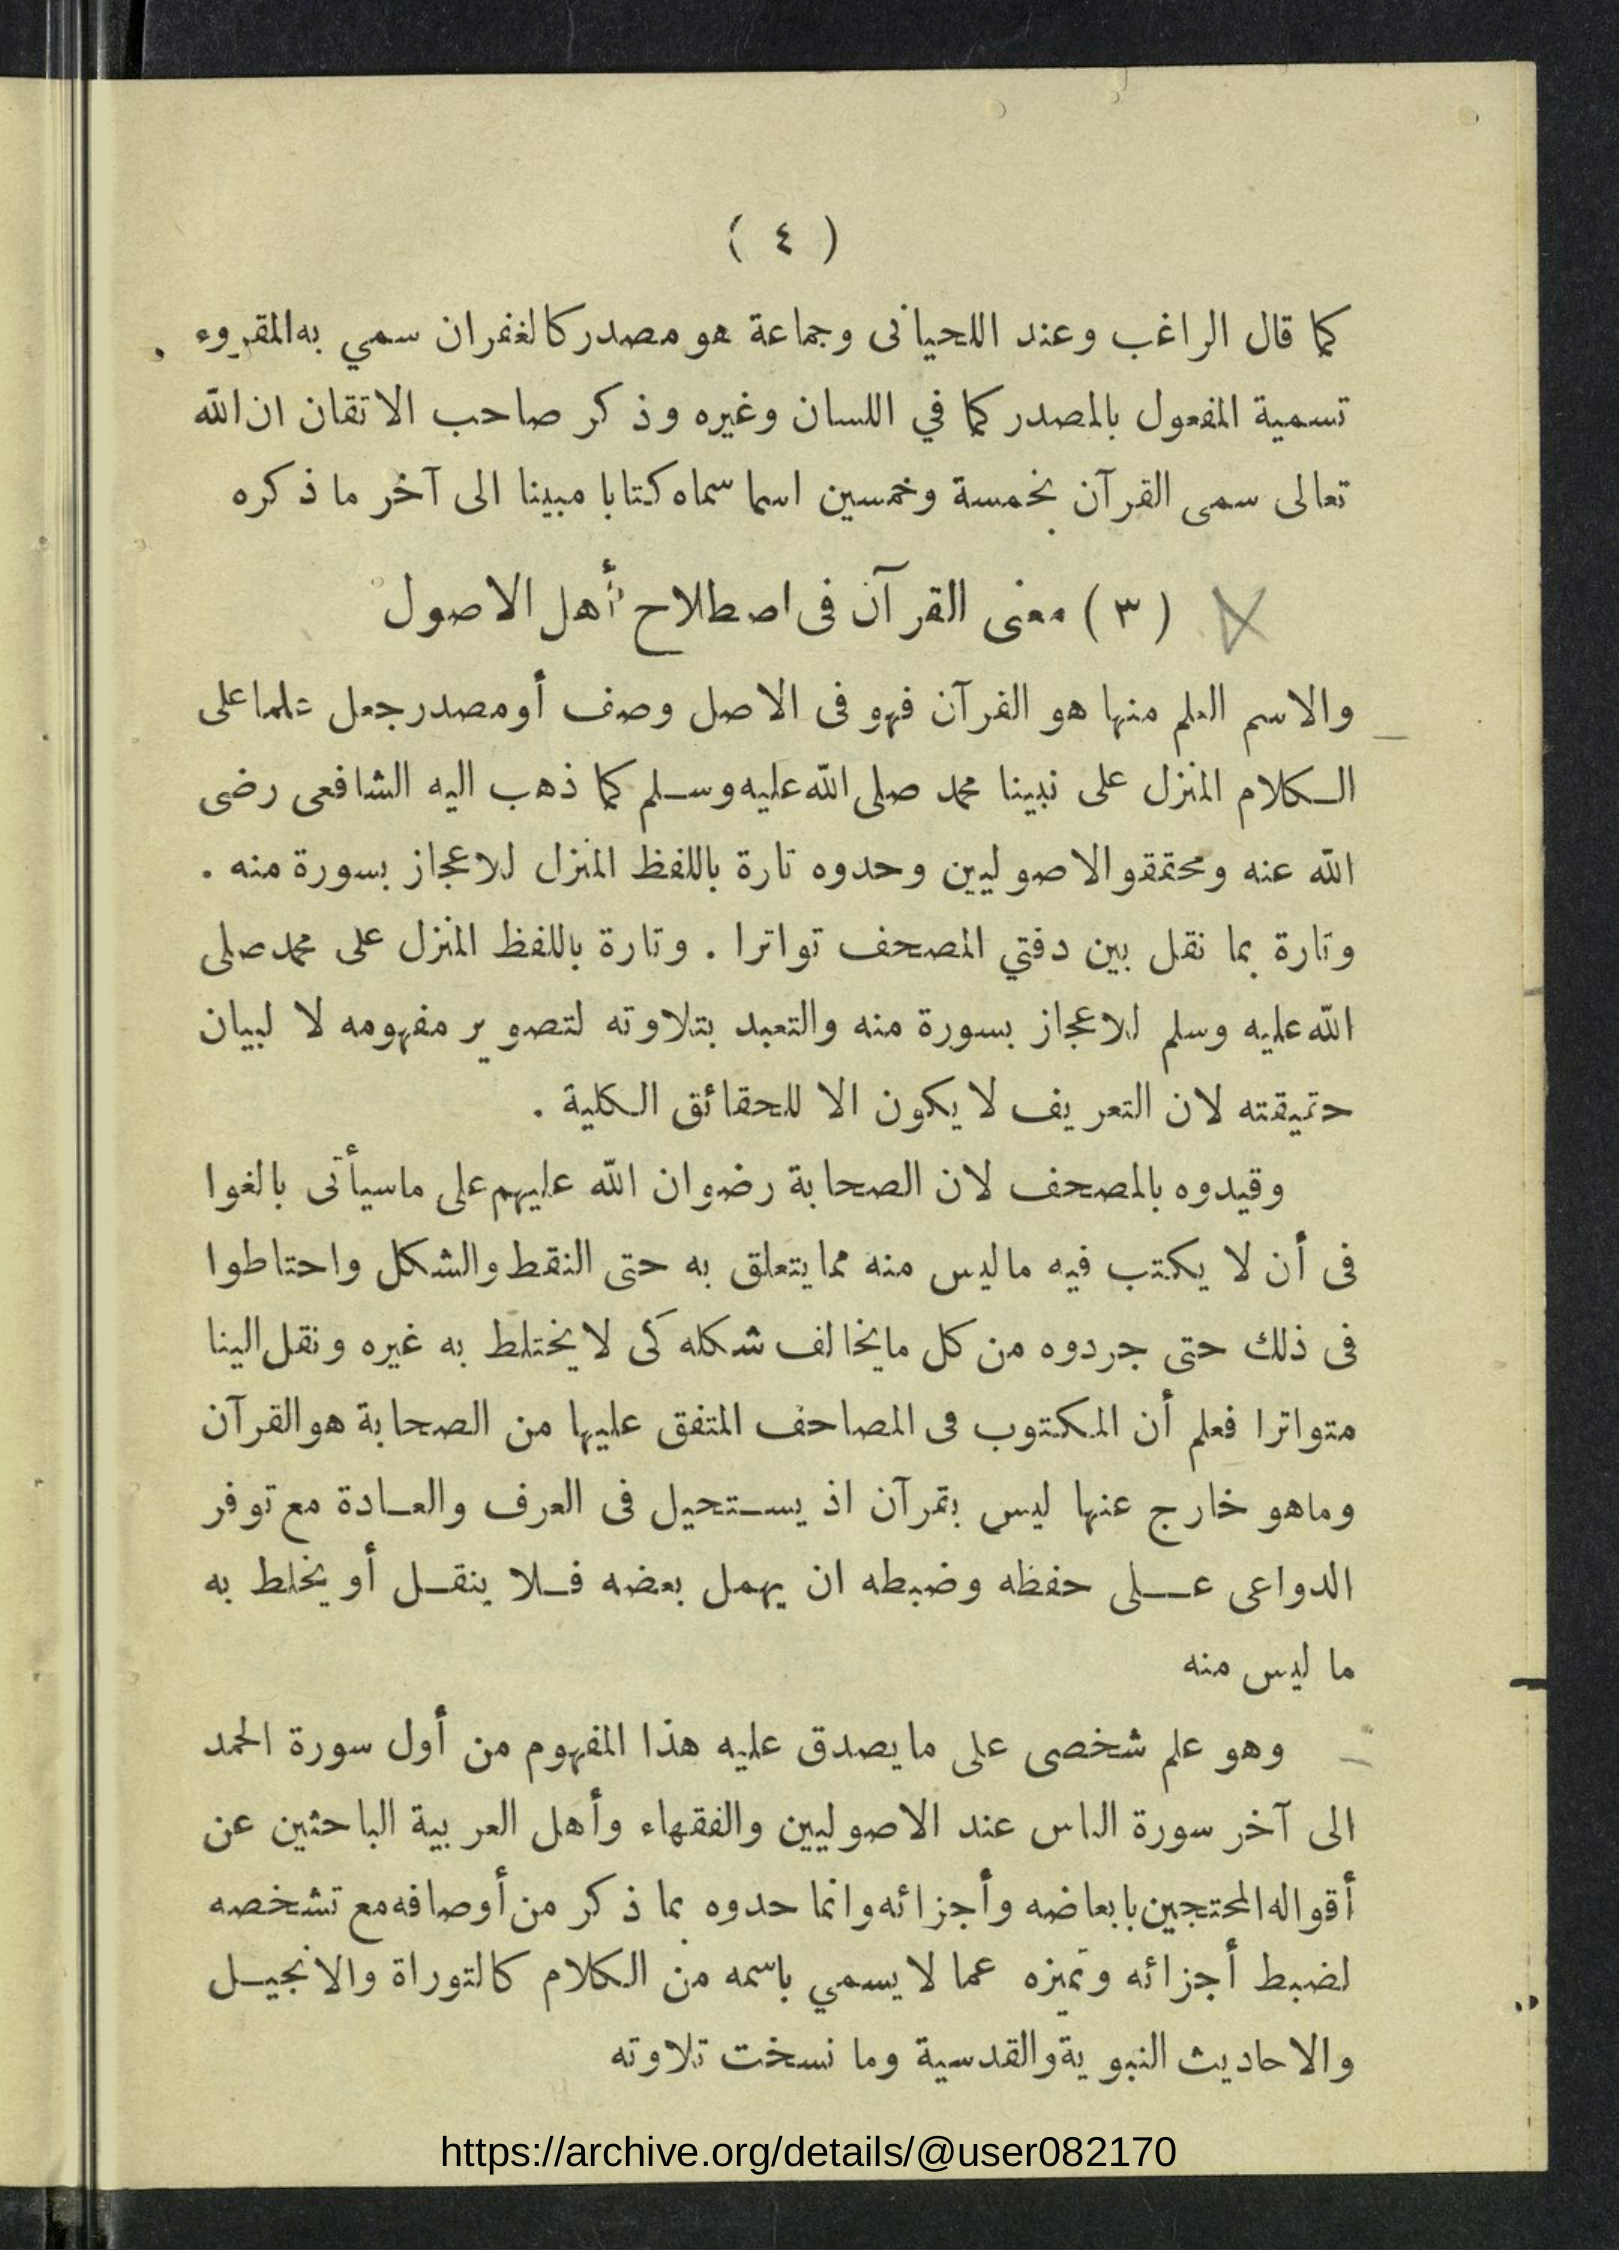 ( ٤ )
كما قال الراغب وعند اللحيانى وجماعة هو مصدر كالغفران سمي به المقروء
تسمية المفعول بالمصدر كما في اللسان وغيره وذكر صاحب الاتقان ان الله
تعالى سمى القرآن بخمسة وخمسين اسما سماه كتابا مبينا الى آخر ما ذكره
( ٣ ) معنى القرآن فى اصطلاح أهل الاصول
والاسم العلم منها هو القرآن فهو فى الاصل وصف أو مصدر جعل علما على
الكلام المنزل على نبينا محمد صلى الله عليه وسلم كما ذهب اليه الشافعى رضى
الله عنه ومحققو الاصوليين وحدوه تارة باللفظ المنزل للاعجاز بسورة منه .
وتارة بما نقل بين دفتي المصحف تواترا . وتارة باللفظ المنزل على محمد صلى
الله عليه وسلم للاعجاز بسورة منه والتعبد بتلاوته لتصوير مفهومه لا لبيان
حقيقته لان التعريف لا يكون الا للحقائق الكلية .
وقيدوه بالمصحف لان الصحابة رضوان الله عليهم على ماسيأتى بالغوا
فى أن لا يكتب فيه ماليس منه مما يتعلق به حتى النقط والشكل واحتاطوا
فى ذلك حتى جردوه من كل مايخالف شكله كى لا يختلط به غيره ونقل الينا
متواترا فعلم أن المكتوب فى المصاحف المتفق عليها من الصحابة هو القرآن
وماهو خارج عنها ليس بقرآن اذ يستحيل فى العرف والعادة مع توفر
الدواعى على حفظه وضبطه ان يهمل بعضه فلا ينقل أو يخلط به
ما ليس منه
وهو علم شخصى على مايصدق عليه هذا المفهوم من أول سورة الحمد
الى آخر سورة الناس عند الاصوليين والفقهاء وأهل العربية الباحثين عن
أقواله المحتجين بابعاضه وأجزائه وانما حدوه بما ذكر من أوصافه مع تشخصه
لضبط أجزائه وتميزه عما لا يسمي باسمه من الكلام كالتوراة والانجيل
والاحاديث النبوية والقدسية وما نسخت تلاوته
https://archive.org/details/@user082170